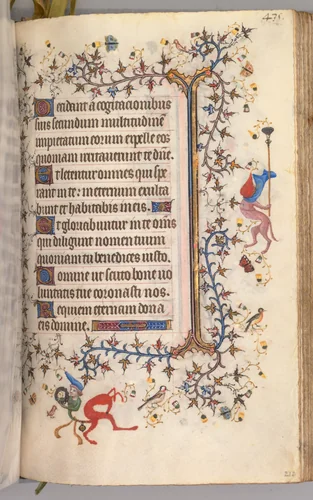 475
Decidant a cogitacionibus
suis secundum multitudinē
impietatum eorum expelle eos
quoniam irritauerunt te dn̄e.
Et letentur omnes qui spe
rant in te: in eternum exulta
bunt et habitabis in eis.
Et gloriabuntur in te om̄s
qui diligunt nomen tuum
quoniam tu benedices iusto.
Domine ut scuto bone uo
luntatis tue coronasti nos.
Requiem eternam dona
eis domine.